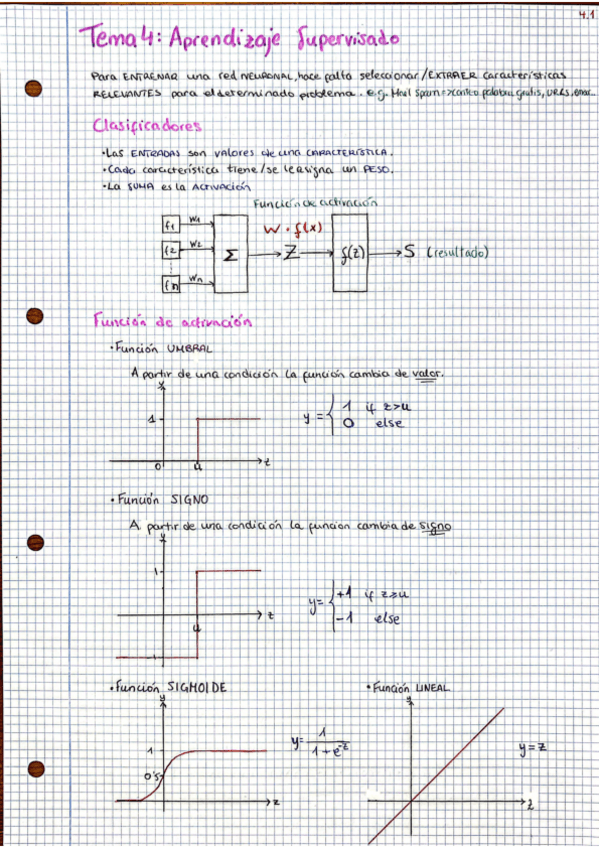 4.1
Tema 4: Aprendizaje Supervisado
Para ENTRENAR una red NEURONAL, hace falta seleccionar / EXTRAER características
RELEVANTES para el determinado problema. e.g. Mail Spam => conteo palabra gratis, URLS,
Clasificadores
·Las ENTRADAS son valores de una CARACTERÍSTICA.
·Cada característica tiene / se le asigna un PESO.
·La SUMA es la ACTIVACIÓN
Función de activación
f1 w1
f2 w2
fn wn
Σ
w · f(x)
Z
f(z)
S (resultado)
Función de activación
·Función UMBRAL
A partir de una condición la función cambia de valor.
y
1
0 u z
y = { 1 if z>u
0 else
·Función SIGNO
A partir de una condición la función cambia de signo
y
1
u z
y = { +1 if z≥u
-1 else
·Función SIGMOIDE
y
1
0'5
z
y = 1 / 1 + e^-z
·Función LINEAL
y
z
y = z